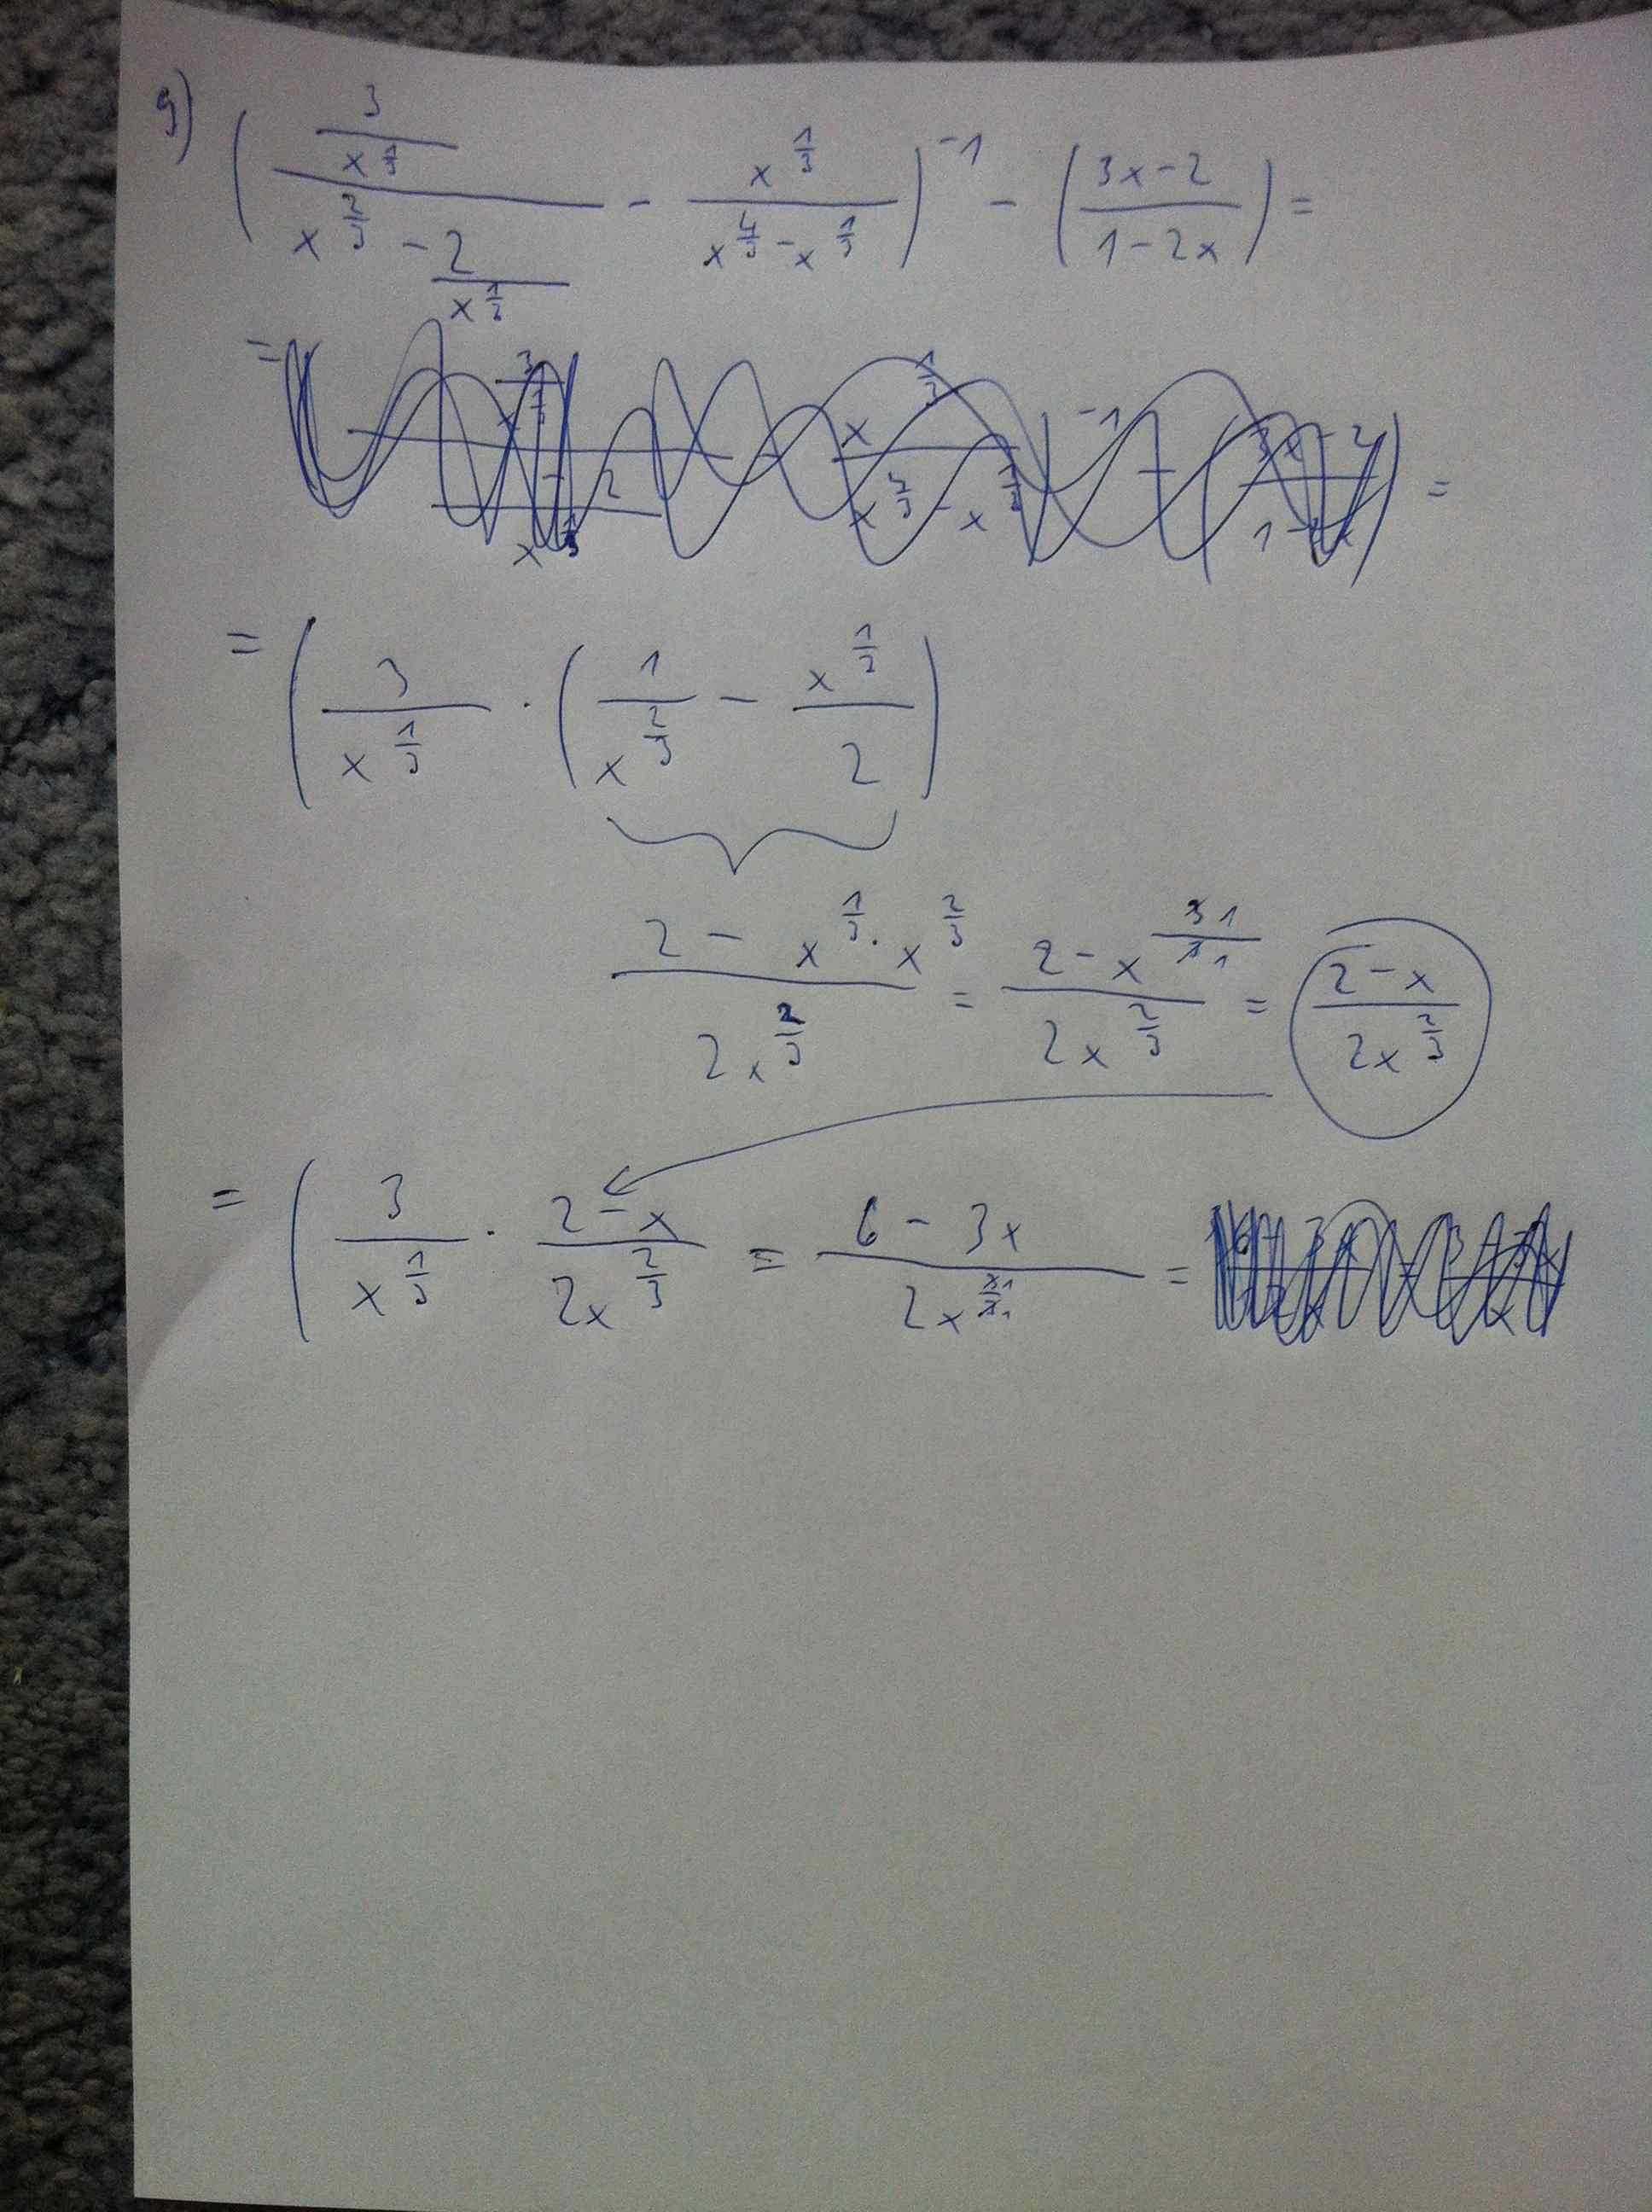 9) ( (3/x^(1/3)) / (x^(2/3) - 2/x^(1/3)) - x^(1/3) / (x^(4/3) - x^(1/3)) )^-1 - ( (3x-2) / (1-2x) ) =
=
= ( 3/x^(1/3) · ( 1/x^(2/3) - x^(1/3)/2 )
(2 - x^(1/3) · x^(2/3)) / (2x^(2/3)) = (2 - x^(3 1/3 1)) / (2x^(2/3)) = (2-x) / (2x^(2/3))
= ( 3/x^(1/3) · (2-x) / (2x^(2/3)) = (6 - 3x) / (2x^(3 1/3 1)) =